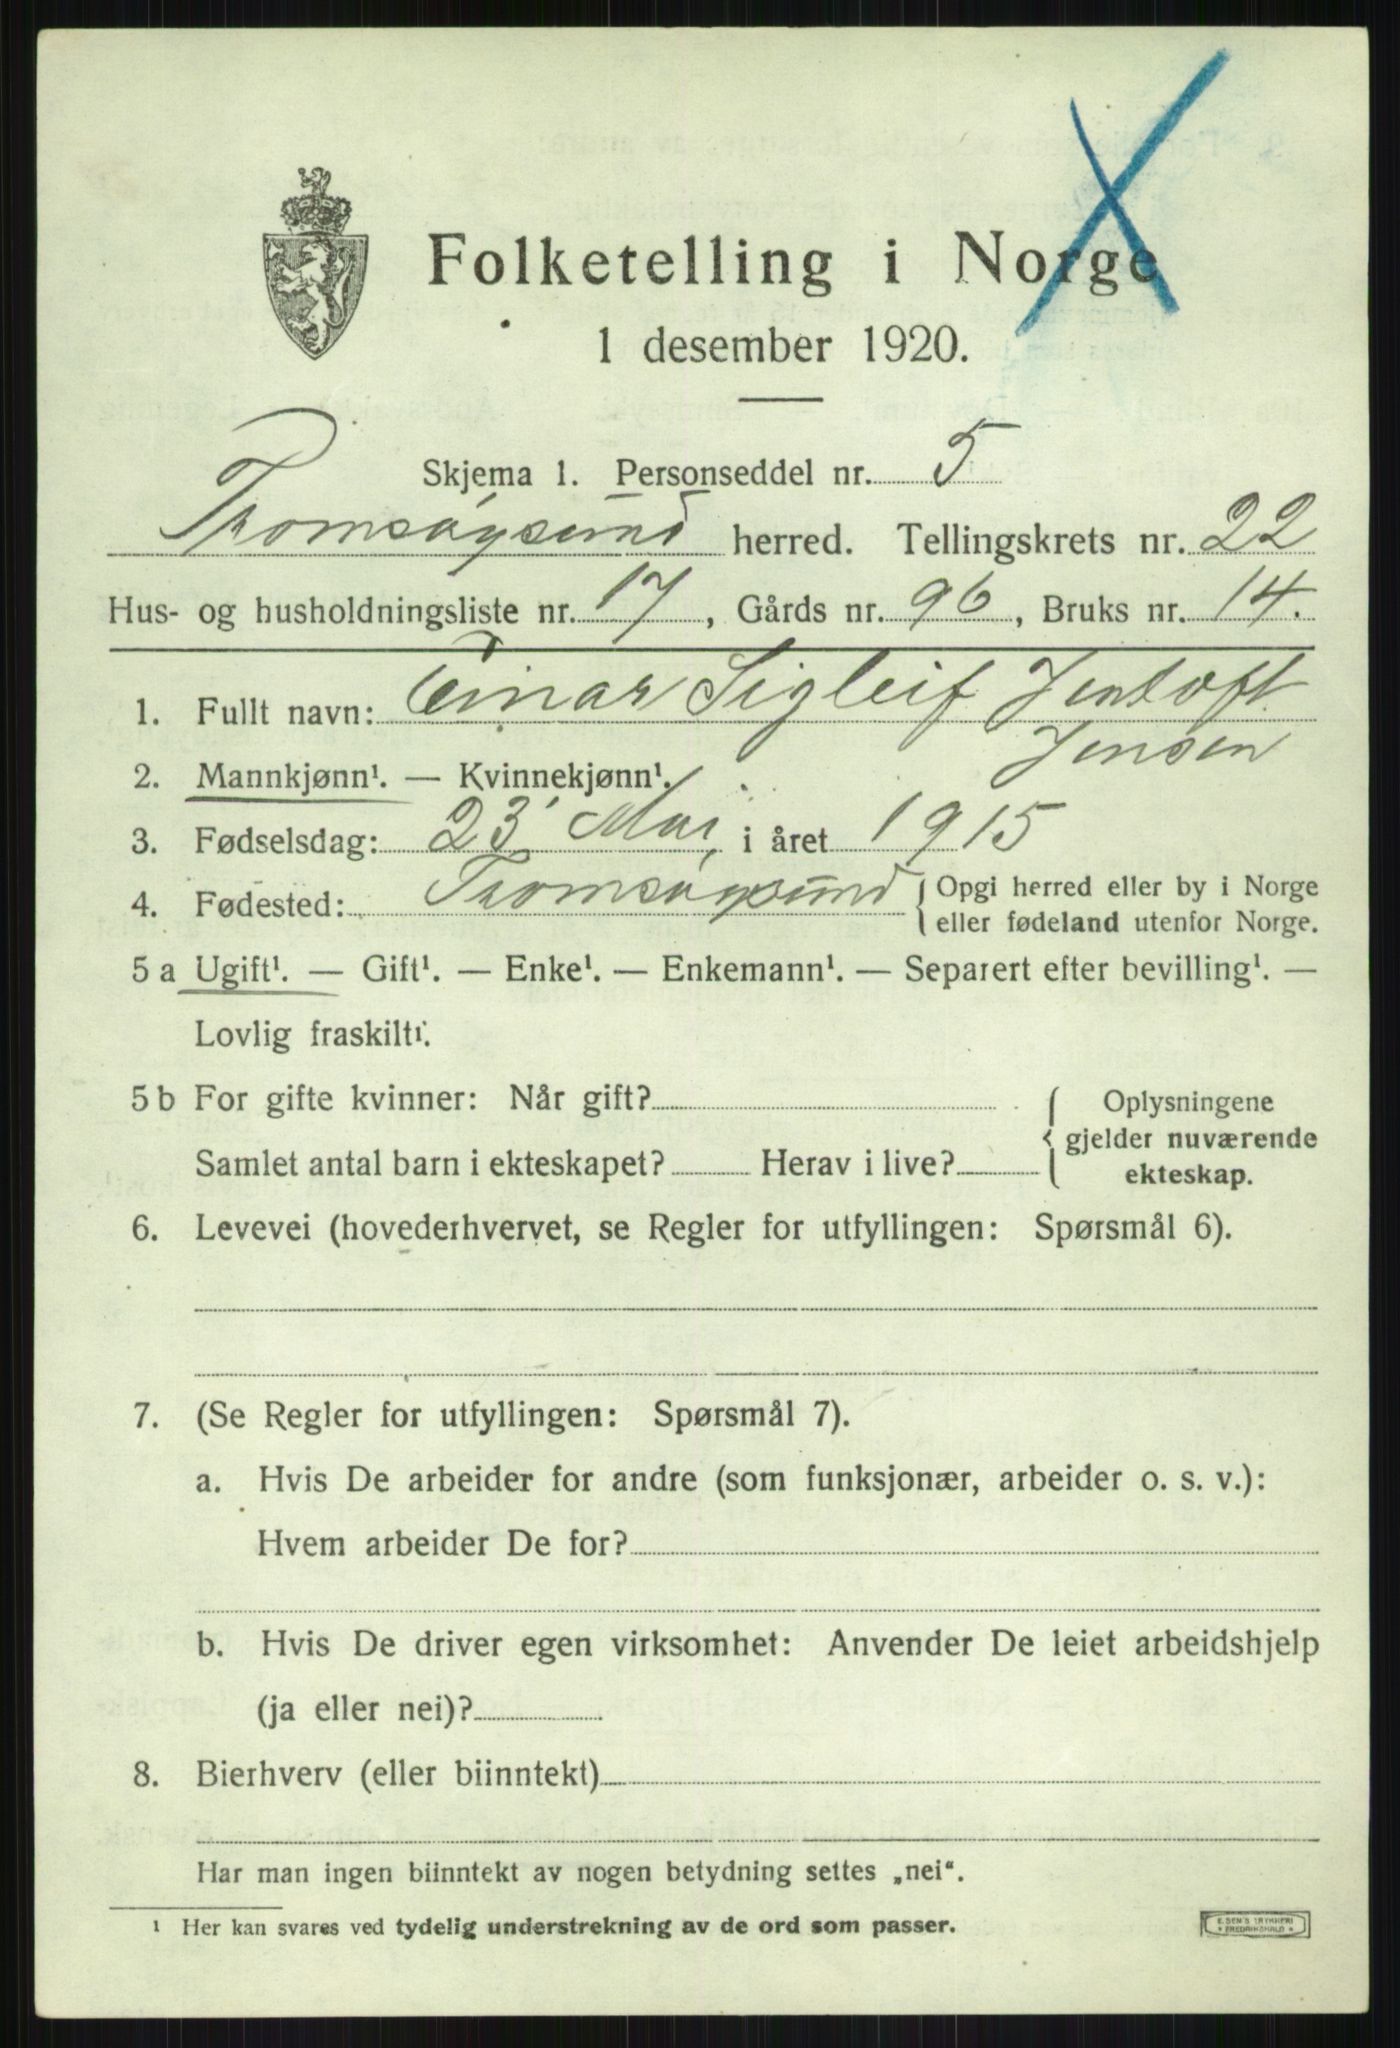 Folketelling i Norge
1 desember 1920.
Skjema 1. Personseddel nr. 5
Tromsøysund herred. Tellingskrets nr. 22
Hus- og husholdningsliste nr. 17, Gårds nr. 96, Bruks nr. 14.
1. Fullt navn: Einar Sigleif Jentoft
Jensen
2. Mannkjønn¹. — Kvinnekjønn¹.
3. Fødselsdag: 23 Mai, i året 1915
4. Fødested: Tromsøysund { Opgi herred eller by i Norge
eller fødeland utenfor Norge.
5 a Ugift¹. — Gift¹. — Enke¹. — Enkemann¹. — Separert efter bevilling¹. —
Lovlig fraskilt¹.
5 b For gifte kvinner: Når gift?
Samlet antal barn i ekteskapet? Herav i live?
Oplysningene
gjelder nuværende
ekteskap.
6. Levevei (hovederhvervet, se Regler for utfyllingen: Spørsmål 6).
7. (Se Regler for utfyllingen: Spørsmål 7).
a. Hvis De arbeider for andre (som funksjonær, arbeider o. s. v.):
Hvem arbeider De for?
b. Hvis De driver egen virksomhet: Anvender De leiet arbeidshjelp
(ja eller nei)?
8. Bierhverv (eller biinntekt)
Har man ingen biinntekt av nogen betydning settes „nei“.
¹ Her kan svares ved tydelig understrekning av de ord som passer.